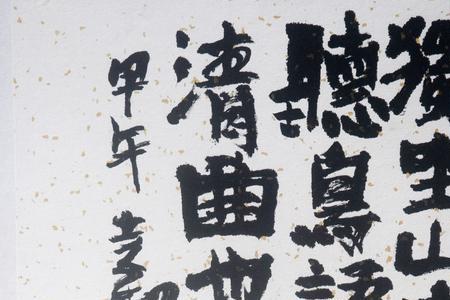 獨坐山
聽鳥語
清曲
甲午